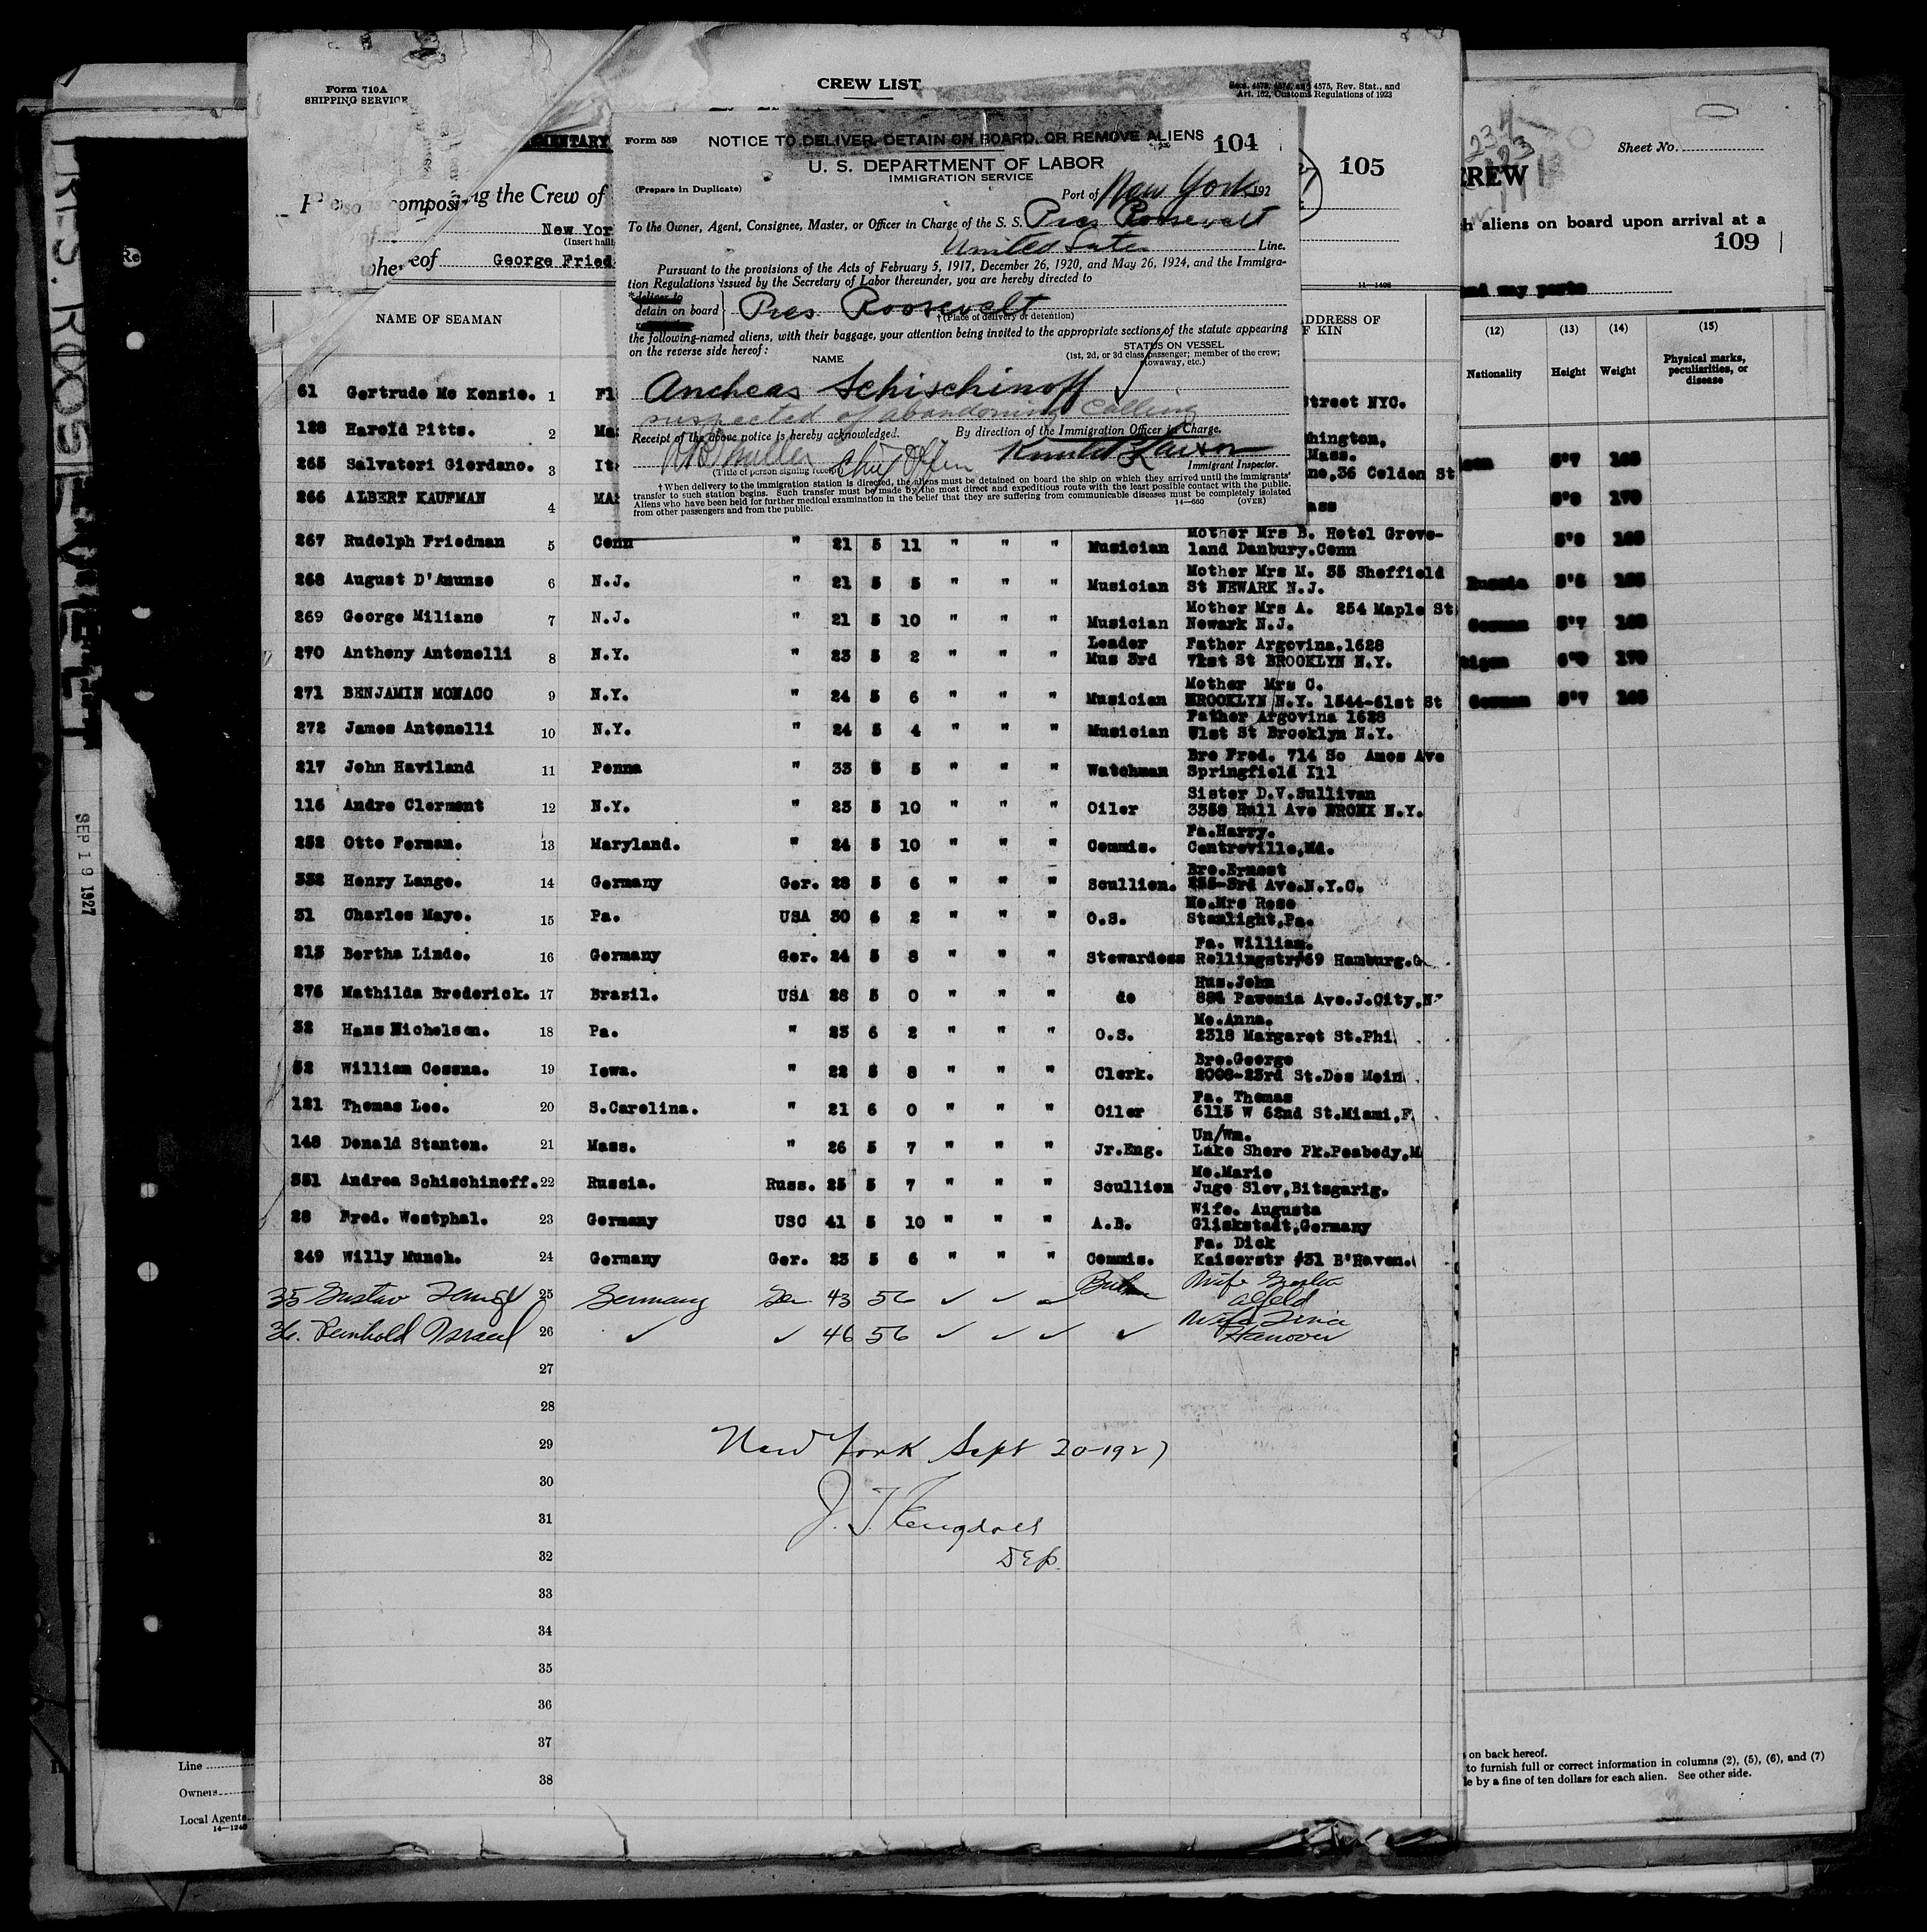 Form 710A
SHIPPING SERVICE
CREW LIST
4575, Rev. Stat., and
Art. 162, Customs Regulations of 1923
composing the Crew of
New Yor
(Insert
whereof George Fried
105
11-1498
NAME OF SEAMAN
ADDRESS OF
KIN
Form 559
NOTICE TO DELIVER, DETAIN ON BOARD, OR REMOVE ALIENS
104
U. S. DEPARTMENT OF LABOR
IMMIGRATION SERVICE
(Prepare in Duplicate)
Port of New York 192
To the Owner, Agent, Consignee, Master, or Officer in Charge of the S. S. Pres Roosevelt
United States Line.
Pursuant to the provisions of the Acts of February 5, 1917, December 26, 1920, and May 26, 1924, and the Immigra-
tion Regulations issued by the Secretary of Labor thereunder, you are hereby directed to
*deliver to
detain on board } Pres Roosevelt
†(Place of delivery or detention)
the following-named aliens, with their baggage, your attention being invited to the appropriate sections of the statute appearing
on the reverse side hereof:
NAME
STATUS ON VESSEL
(1st, 2d, or 3d class passenger; member of the crew;
stowaway, etc.)
Andreas Schischinoff ✓
suspected of abandoning calling
Receipt of the above notice is hereby acknowledged. By direction of the Immigration Officer in Charge.
Muller Chief Offcn
(Title of person signing receipt)
Immigrant Inspector.
†When delivery to the immigration station is directed, the aliens must be detained on board the ship on which they arrived until the immigrants'
transfer to such station begins. Such transfer must be made by the most direct and expeditious route with the least possible contact with the public.
Aliens who have been held for further medical examination in the belief that they are suffering from communicable diseases must be completely isolated
from other passengers and from the public.
14-660 (OVER)
61 Gertrude Mc Kenzie. 1 Fl Street NYC.
128 Harold Pitts. 2 Ma
265 Salvatori Giordano. 3 It 36 Colden St
266 ALBERT KAUFMAN 4 MA
267 Rudolph Friedman 5 Conn " 21 5 11 " " " Musician Mother Mrs B. Hotel Grove-
land Danbury.Conn
268 August D'Amunzo 6 N.J. " 21 5 5 " " " Musician Mother Mrs M. 35 Sheffield
St NEWARK N.J.
269 George Miliano 7 N.J. " 21 5 10 " " " Musician Mother Mrs A. 254 Maple St
Newark N.J.
270 Anthony Antonelli 8 N.Y. " 23 5 2 " " " Leader Mus 3rd Father Argovina.1628
71st St BROOKLYN N.Y.
271 BENJAMIN MONACO 9 N.Y. " 24 5 6 " " " Musician Mother Mrs C.
BROOKLYN N.Y. 1544-61st St
272 James Antonelli 10 N.Y. " 24 5 4 " " " Musician Father Argovina 1628
71st St Brooklyn N.Y.
217 John Haviland 11 Penna " 33 5 5 " " " Watchman Bro Fred. 714 So Amos Ave
Springfield Ill
116 Andre Clermont 12 N.Y. " 23 5 10 " " " Oiler Sister D.V.Sullivan
3358 Hull Ave BRONX N.Y.
252 Otto Forman. 13 Maryland. " 24 5 10 " " " Commis. Fa.Harry.
Centreville,Md.
332 Henry Lange. 14 Germany Ger. 28 5 6 " " " Scullion. Bro.Ernest
235-3rd Ave.N.Y.C.
31 Charles Maye. 15 Pa. USA 30 6 2 " " " O.S. Mo.Mrs Rose
Stemlight,Pa.
215 Bertha Linde. 16 Germany Ger. 24 5 8 " " " Stewardess Fa. William.
Rellingstr#69 Hamburg.G
276 Mathilda Brederick. 17 Brazil. USA 28 5 0 " " " do Hus.John
884 Pavonia Ave.J.City,N
32 Hans Nicholson. 18 Pa. " 23 6 2 " " " O.S. Mo.Anna.
2318 Margaret St.Phi
52 William Cessna. 19 Iowa. " 22 5 8 " " " Clerk. Bro.George
2008-23rd St.Des Moin
121 Thomas Lee. 20 S.Carolina. " 21 6 0 " " " Oiler Fa. Thomas
6115 W 62nd St.Miami,F
148 Donald Stanton. 21 Mass. " 26 5 7 " " " Jr.Eng. Un/Wm.
Lake Shore Pk.Peabody,M
351 Andrea Schischineff. 22 Russia. Russ. 25 5 7 " " " Scullion Mo.Marie
Juge Slov,Bitsgarig.
28 Fred. Westphal. 23 Germany USC 41 5 10 " " " A.B. Wife. Augusta
Gliskstadt,Germany
249 Willy Munch. 24 Germany Ger. 23 5 6 " " " Commis. Fa. Dick
Kaiserstr #31 B'Haven.
35 Gustav 25 Germany Ger 43 56 ✓ ✓ ✓ Wife
Alfeld
36. Reinhold Israel 26 ✓ ✓ 46 56 ✓ ✓ ✓ ✓ Wife
Hanover
27
28
29
New York Sept 20-1927
30
31
32
33
34
35
36
37
38
PRES. ROOSEVELT
SEP 19 1927
Line
Owners
Local Agents
14-1240
Sheet No.
CREW
aliens on board upon arrival at a
109
and way ports
(12) (13) (14) (15)
Nationality Height Weight Physical marks,
peculiarities, or
disease
5'7 165
5'8 170
5'8 165
Russia 5'6 155
German 5'7 165
170
German 5'7 165
on back hereof.
to furnish full or correct information in columns (2), (5), (6), and (7)
by a fine of ten dollars for each alien. See other side.